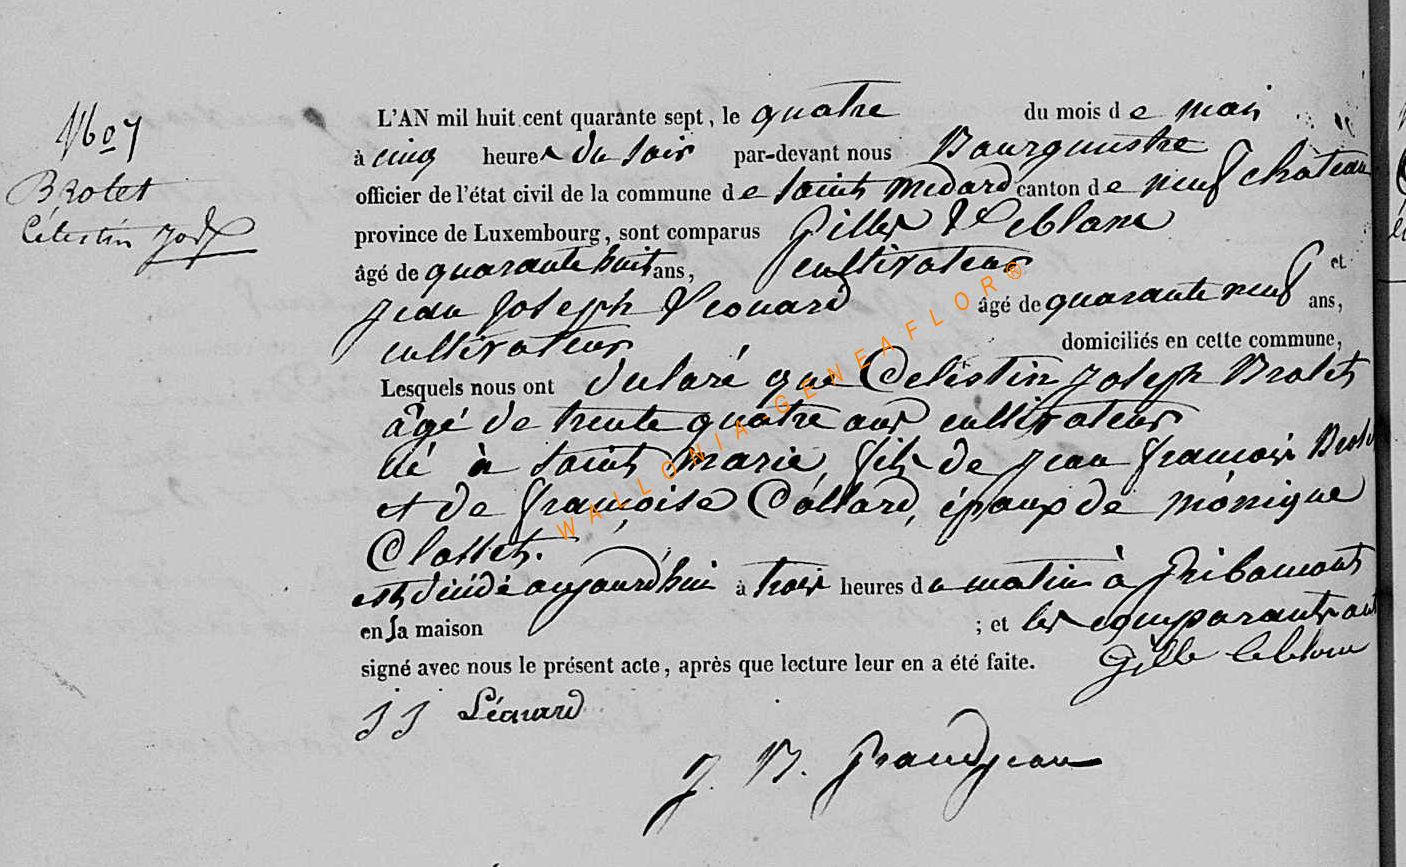 No 7
Brolet
Célestin Josph
L'AN mil huit cent quarante sept, le quatre du mois de mai
à cinq heures du soir par-devant nous Bourgmestre
officier de l'état civil de la commune de saint medard canton de neufchâteau
province de Luxembourg, sont comparus Gilles Leblanc
âgé de quarante huit ans, cultivateur et
jean joseph Léonard âgé de quarante neuf ans,
cultivateur domiciliés en cette commune,
Lesquels nous ont déclaré que Celéstin joseph Brolet
âgé de trente quatre ans cultivateur
né à saint marie, fils de jean françois Brolet
et de françoise Collard, époux de monique
Closset.
est décédé aujourd'hui à trois heures du matin à gribomont
en sa maison ; et les comparants ont
signé avec nous le présent acte, après que lecture leur en a été faite.
Gille leblanc
JJ Léonard
J. B. Grandjean
WALLONIA-GENEAFLOR®